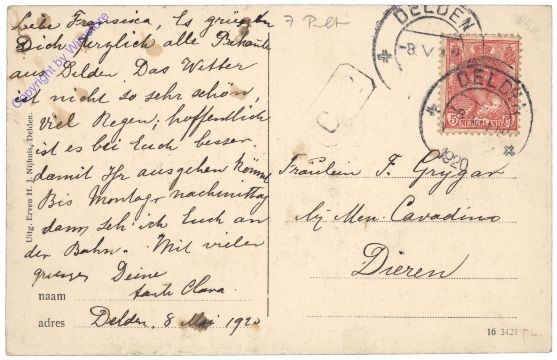 Liebe Franzisca, Es grüssen
Dich herzlich alle Bekannte
aus Delden. Das Wetter
ist nicht so sehr schön,
viel Regen; hoffentlich
ist es bei Euch besser
damit Ihr ausgehen könnt
Bis Montag nachmittag
dann seh' ich Euch an
der Bahn. Mit vielen
grüssen Deine
tante Clara.
naam
adres Delden, 8 Mai 1920
Uitg. Erven H. J. Nijhuis, Delden.
Copyright by
7
DELDEN
8 V
DELDEN
1920
NEDERLAND
5
Fräulein F. Grygar
bij Mevr. Cavadino
Dieren
16 3421